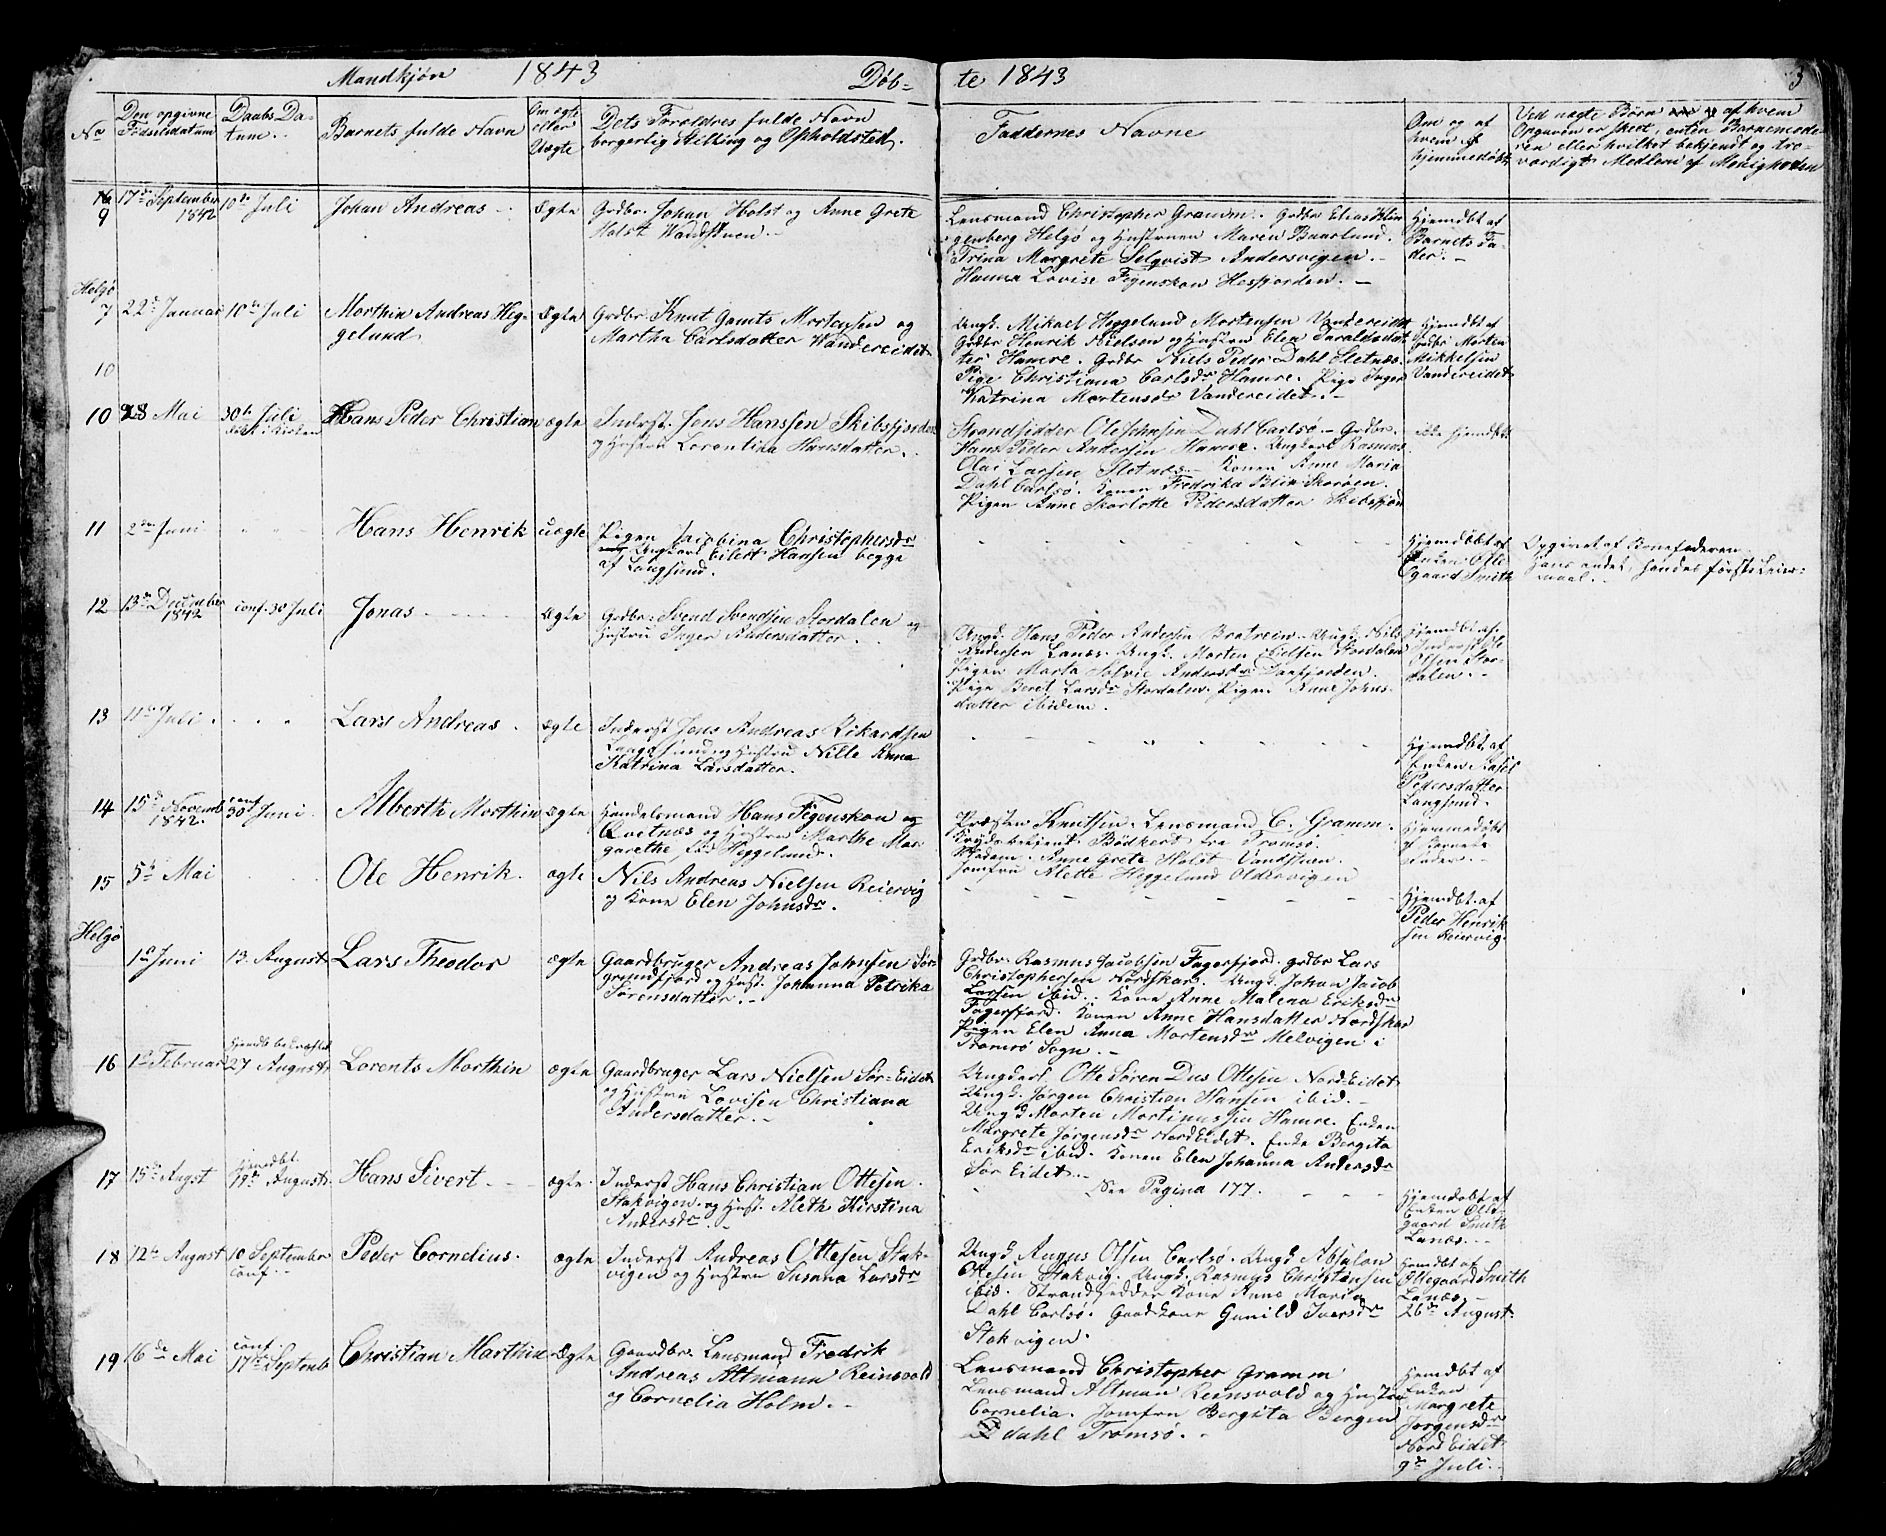 Mandkjøn 1843 Døb-
te 1843
3
No
Den opgivne Fødselsdatum
Daabs Datum
Barnets fulde Navn
Om ægte eller Uægte
Dets Foreldres fulde Navn borgerlig Stilling og Opholdsted.
Faddernes Navne
Om og af hvem hjemmedøbt
Ved uægte Børn af hvem
Opgaven er skeet, enten Barnemode-
ren eller hvilket bekjendt og tro-
værdigt Medlem af Menigheden
9
17de September 1842
10de Juli
Johan Andreas
Ægte
Grdbr. Johan Holst og Anne Grete
Holst Wandstuen.
Lensmand Christopher Gramm. Grdbr Elias Klin
genberg Helgø og Hustruen Maren Buarlund.
Trina Margrete Selqvist Andersvigen.
Hanna Lovise Figenskou Hesfjorden.
Hjemdbt af
Barnets Fa-
der.
Helgø
7
22de Januar
10de Juli
Morthin Andreas Heg-
gelund
Ægte
Grdbr. Knut Gamts Mortensen og
Martha Carlsdatter Wandereidet
Ungk. Mikael Heggelund Mortensen Vandereidet
Grdbr Henrik Nielsen og Hustru Elen Taraldsdat
ter Hamre. Grdbr Niels Peder Dahl Sletnæs.
Pige Christiana Carlsdr Hamre. Pige Inger
Katrina Mortensdr Vandereidet.
Hjemdbt af
Grdbr Morten
Mikkelsen
Vandereidet
10
10
28 Mai
30te Juli
Hans Peder Christian
ægte
Inderst. Jens Hanssen Skibsfjorden
og Hustru Lorentina Hansdatter.
Strandsidder Ole Johnsen Dahl Carlsø. Grdbr.
Hans Peder Andersen Hamre. Ungkarl Rasmus
Olai Larsen Sletnæs. Konen Anne Maria
Dahl Carlsø. Konen Fredrika Blix Skorøen.
Pigen Anne Skarlotte Pedersdatter Skibsfjord
ikke hjemdbt.
11
2den Juni
Hans Henrik
uægte
Pigen Jacobina Christophersdr
Ungkarl Eilert Hansen begge
af Langsund.
Hjemdøbt af
Enken Olle-
gaard Smith
Opgivet af Barnefaderen.
Hans andet, hendes første Leier-
maal.
12
13de December 1842
conf. 30 Juli
Jonas
Ægte
Grdbr. Svend Svendsen Stordalen og
Hustru Inger Andersdatter.
Ungk. Hans Peder Andersen Bratrein. Ungk. Nils
Andersen Lanæs. Ungk. Morten Nielsen Stordalen
Pigen Marta Solvie Andersdr Daafjorden.
Pige Beret Larsdr Stordalen. Pigen Anne Johns-
datter ibidem.
Hjemdbt af
Inderst Ole
Olsen Stor-
dalen.
13
11te Juli
Lars Andreas.
ægte
Inderst Jens Andreas Rikardsen
Langsund og Hustru Nille Anna
Katrina Larsdatter.
Hjemdbt. af
Enken Rasel
Pedersdatter
Langsund.
14
15de Novemb 1842.
conf 30 Juni.
Alberth Morthin
Ægte
Handelsmand Hans Figenskou og
Qvitnæs og Hustru Marthe Mar
garethe, født Heggelund.
Præsten Knutsen. Lensmand C. Gramm.
Bødkert fra Tromsø.
Madam. Anne Grete Holst Vandstuen.
Jomfru Alette Heggelund Oldervigen
Hjemmedøbt
af Barnets
Fader.
15
5te Mai
Ole Henrik.
ægte
Nils Andreas Nielsen Reiervig
og Kone Elen Johnsdr.
Hjemdbt. af
Peder Henrik
sen Reiervig.
Helgø
1ste Juni
13. August
Lars Theodor
ægte
Gaardbruger Andreas Johnsen Sør-
grundfjord og Hust. Johanna Petrika
Sørensdatter.
Grdbr. Rasmus Jacobsen Fagerfjord. grdbr Lars
Christophersen Nordskar. Ungk. Johan Jacob
Larsen ibid. Kone Anne Malena Eriksdr
Fagerfjord. Konen Anne Hansdatter Nordskar
Pigen Elen Anna Mortensdr Melvigen i
Tromsø Sogn.
16
1ste Februar
27 August.
Lorents Morthin
ægte
Gaardbruger Lars Nielsen Sør-Eidet
og Hustru Lovisen Christiana
Andersdatter.
Ungkarl Otte Søren Dus Ottesen Nord-Eidet
Ungk. Jørgen Christian Hansen ibid.
Ungk Morten Mortinussen Hamre. Enken
Margrete Jørgensdr Nord Eidet. Enke Bergita
Eriksdr ibid. Konen Elen Johanna Andersdr
Sør Eidet.
17
15de Augst
Hjemdbt. 19de August.
Hans Sivert
ægte
Inderst Hans Christian Ottesen.
Stakvigen og Hust. Aleth Kirstina
Andersdr.
See Pagina 177.
Hjemdøbt af
Enken Olle-
gaard Smith
Lanæs.
18
12te August
10 September conf.
Peder Cornelius.
ægte
Inderst Andreas Ottesen Stak-
vigen og Hustru Susanna Larsdr
Ungk August Olsen Carlsø. Ungk Absalon
Ottesen Stakvig. Ungk. Rasmus Christensen
ibid. Strandsidder Kone Anne Maria
Dahl Carlsø. Gaardkone Gunild Iversdr
Stakvigen.
Hemdbt af
Ollegaard Smith
Lanæs.
26de August
19
16de Mai
conf 17de Septemb
Christian Marthin
Ægte
Gaardbr. Lensmand Fredrik
Andreas Altmann Reinsvold
og Cornelia Holm.
Lensmand Christopher Gramm
Lensmand Altman Reinsvold og Hustru
Cornelia. Jomfru Bergita Bergen
Dahl Tromsø.
Hemdbt af
Enken
Margrete
Jørgensdr
Nord Eidet
9de Juli.